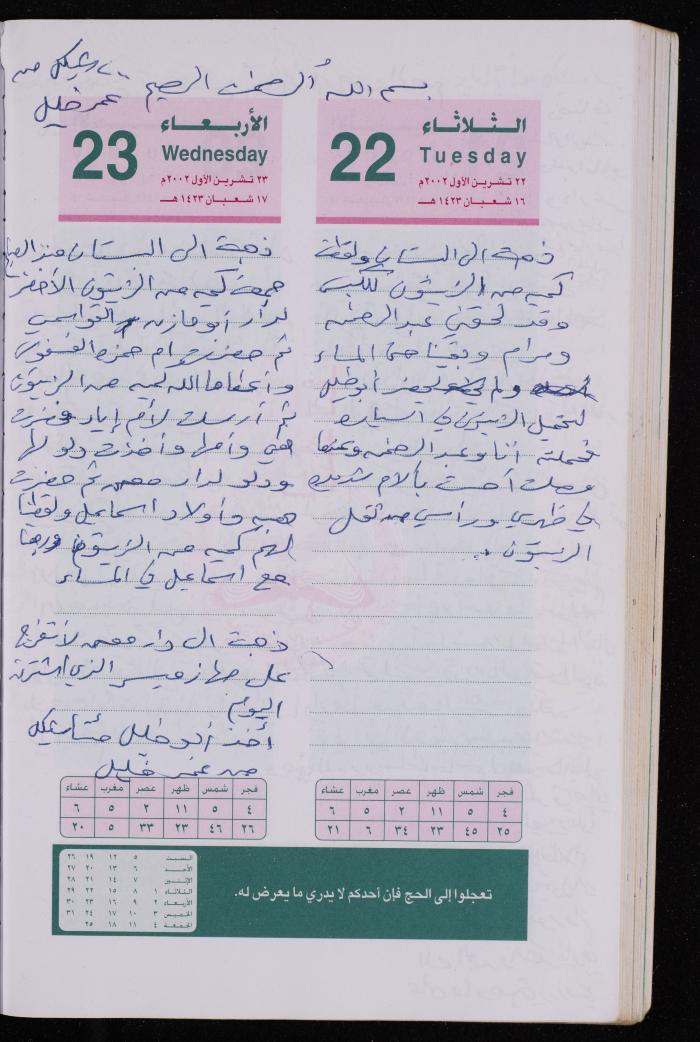 بسم الله الرحمن الرحيم
عمر خليل
الثلاثاء
22
Tuesday
٢٢ تشرين الأول ٢٠٠٢م
١٦ شعبان ١٤٢٣ هـ
ذهبت الى البستان ولقطت
كميه من الزيتون للكبس
وقد لحقني عبد الرحمن
ومرام وبقينا حتى المساء
ولم يحضر أبو خليل
لتحميل الزيتون في السيارة
فحملته أنا وعبد الرحمن وعندما
وصلت أحسست بآلام شديده
في ظهري وراسي من ثقل
الزيتون ..
الأربعاء
23
Wednesday
٢٣ تشرين الأول ٢٠٠٢م
١٧ شعبان ١٤٢٣ هـ
ذهبت الى البستان منذ الصباح
جمعت كميه من الزيتون الأخضر
لدار أبو مازن القواسمي
ثم حضرت ام حمزه
وأعطاها الله كميه من الزيتون
ثم أرسلت لأم إياد فحضرت
هي وأمها وأخذت دلو لها
ودلو لدار معمر ثم حضرت
هبه وأولاد اسماعيل ولقطنا
لهم كميه من الزيتون ورجعنا
مع اسماعيل في المساء
ذهبت الى دار معمر لأتفرج
على جهاز ميسر الذي اشترته
اليوم
أخذ أبو خليل مئتا شيكل
من عمر خليل
فجر شمس ظهر عصر مغرب عشاء
٤ ٥ ١١ ٢ ٥ ٦
٢٥ ٤٥ ٢٣ ٣٤ ٦ ٢١
فجر شمس ظهر عصر مغرب عشاء
٤ ٥ ١١ ٢ ٥ ٦
٢٦ ٤٦ ٢٣ ٣٣ ٥ ٢٠
تعجلوا إلى الحج فإن أحدكم لا يدري ما يعرض له.
السبت ٥ ١٢ ١٩ ٢٦
الأحد ٦ ١٣ ٢٠ ٢٧
الإثنين ٧ ١٤ ٢١ ٢٨
الثلاثاء ١ ٨ ١٥ ٢٢ ٢٩
الأربعاء ٢ ٩ ١٦ ٢٣ ٣٠
الخميس ٣ ١٠ ١٧ ٢٤ ٣١
الجمعة ٤ ١١ ١٨ ٢٥